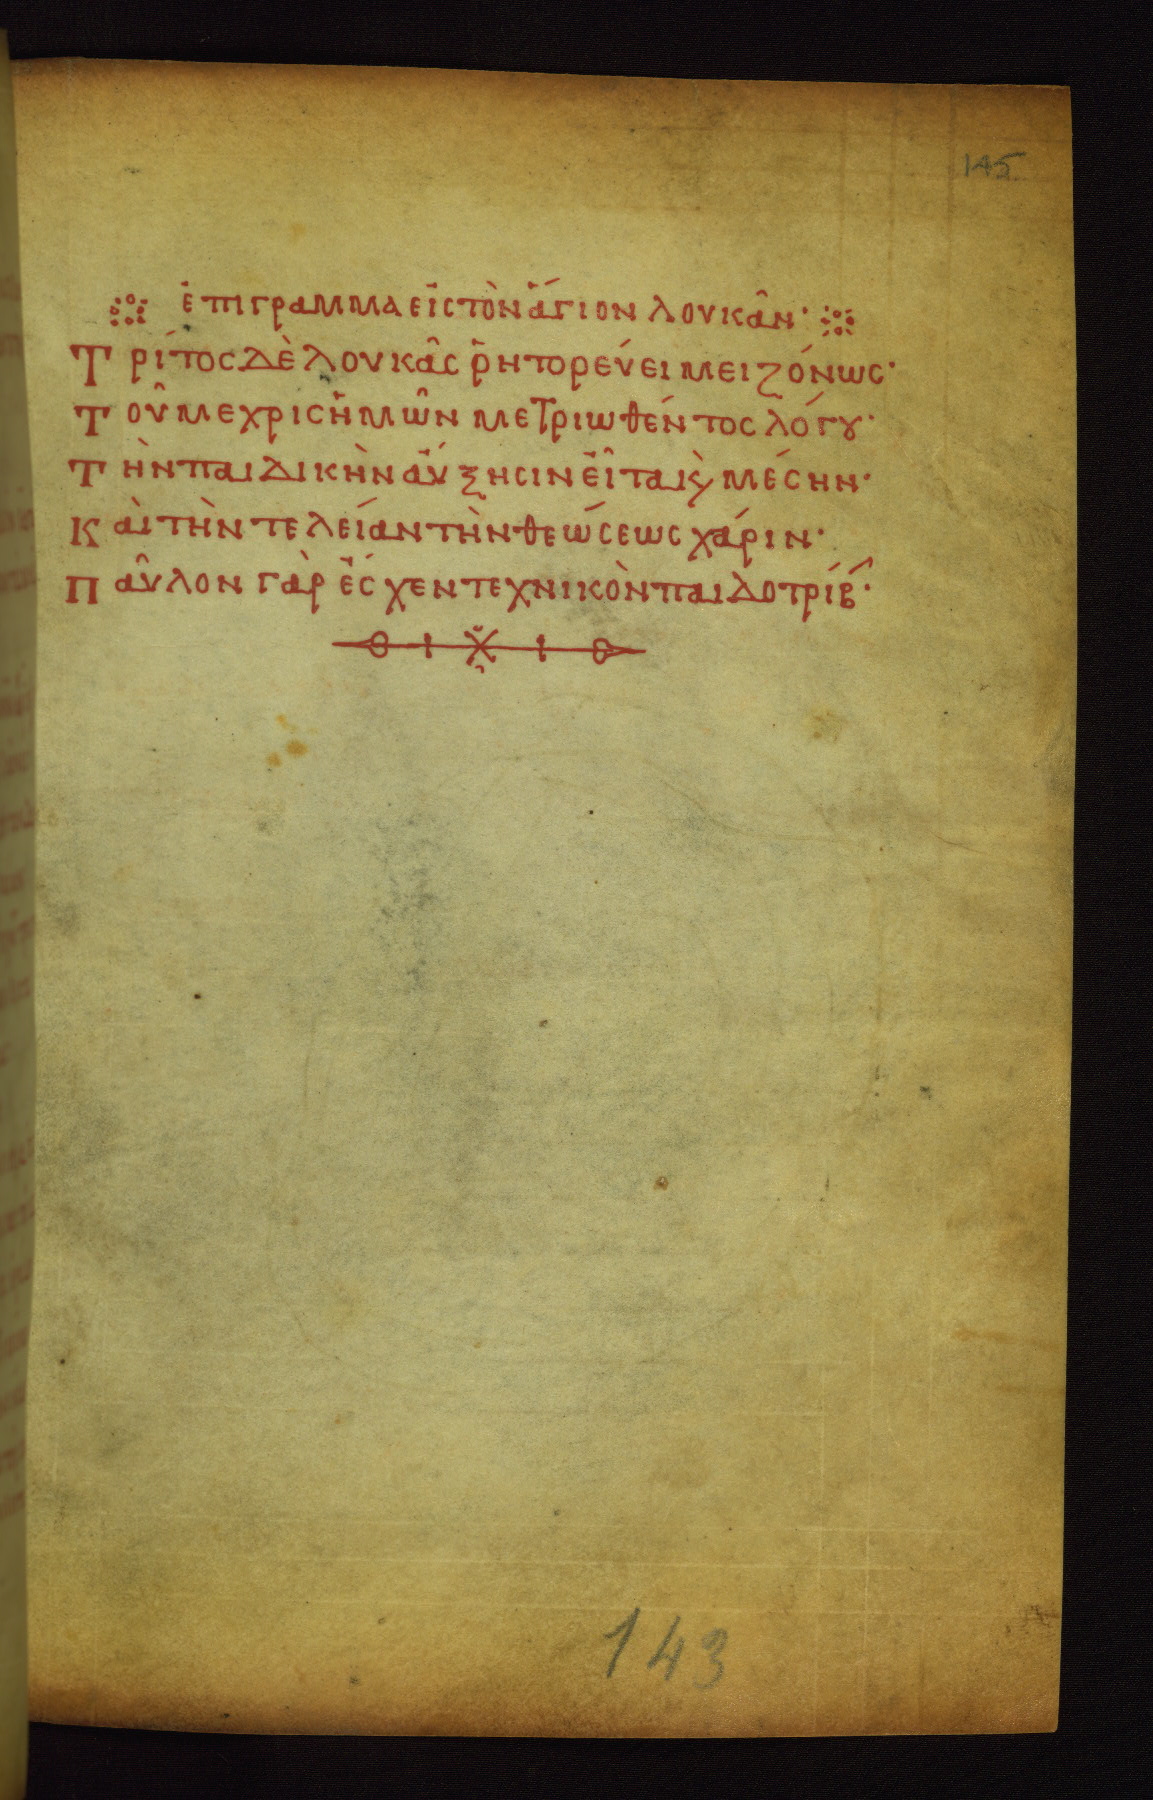 145
ἐπιγραμμα εἰς τὸν ἅγιον λουκᾶν·
Τρίτος δὲ λουκᾶς ῥητορεύει μειζόνως·
Τοῦ μεχρις ἡμῶν μετριωθέντος λόγȣ·
Τὴν παιδικὴν αὔξησιν εἶτα κ̀ μέσην·
Καὶ τὴν τελείαν τὴν θεώσεως χάριν·
Παῦλον γὰρ ἔσχεν τεχνικὸν παιδοτρίβ·
143